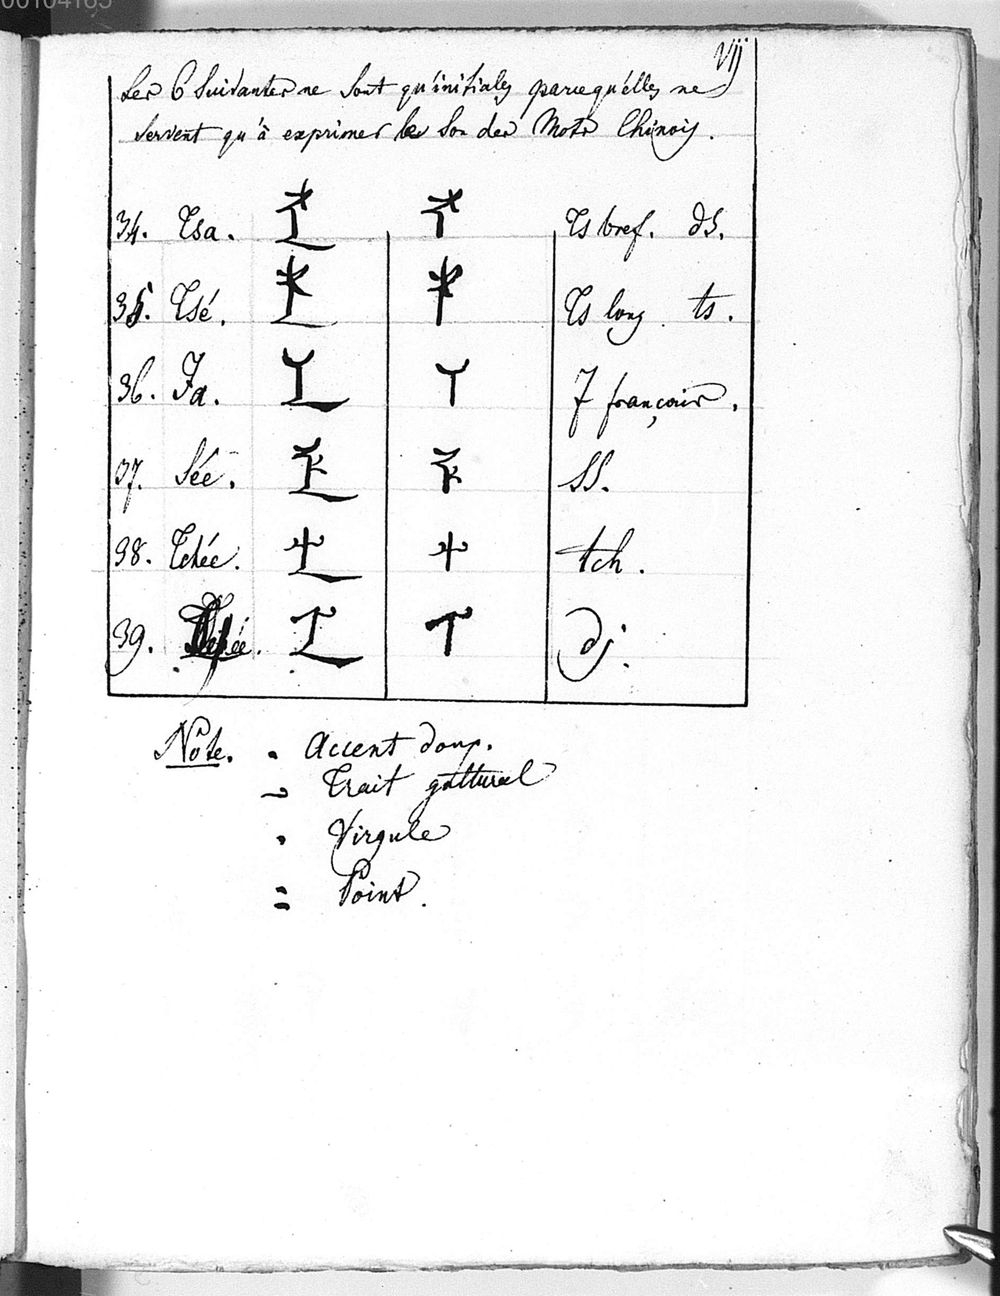 00104165
vij
Les 6 Suivantes ne sont qu'initiales parcequ'elles ne
servent qu'à exprimer le Son des Mots Chinois.
34. Tsa. Ts bref. ds.
35. Tsé. Ts long. ts.
36. Ja. J françois.
37. Séé. SS.
38. Tchée. tch.
39. dj.
Note. Accent doux.
Trait guttural
Virgule
Point.